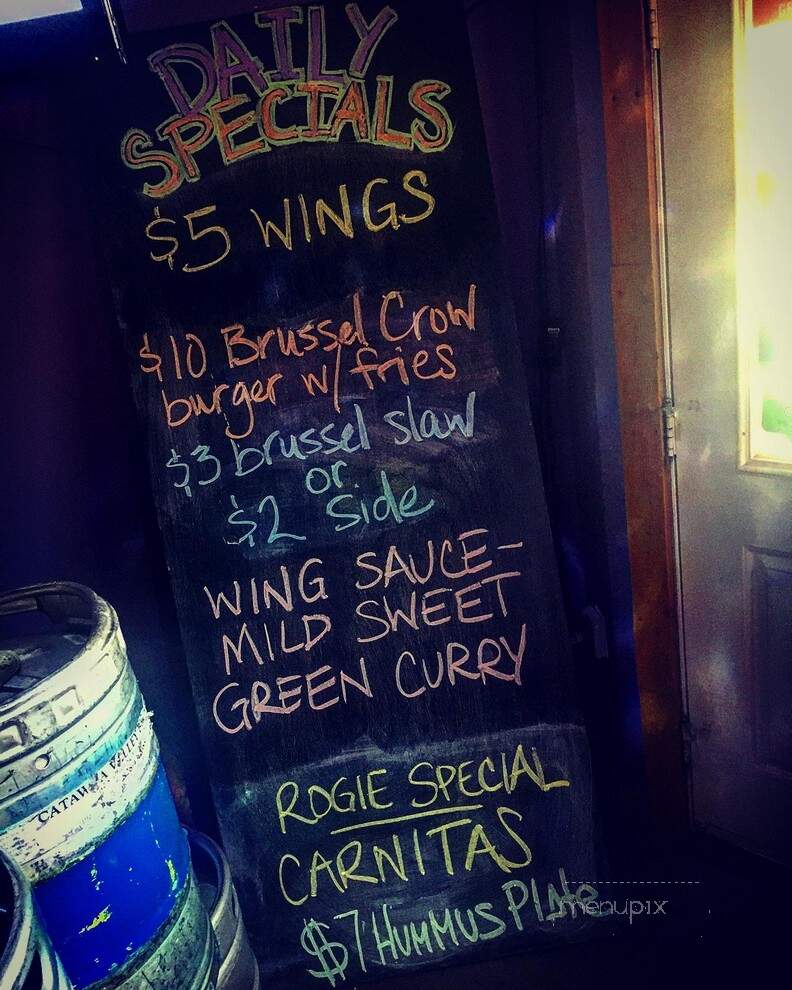 DAILY
SPECIALS
$5 WINGS
$10 Brussel Crow
burger w/ fries
$3 brussel slaw
or
$2 side
WING SAUCE-
MILD SWEET
GREEN CURRY
ROGIE SPECIAL
CARNITAS
$7 HUMMUS Plate
menupix
CATAWBA VALLEY